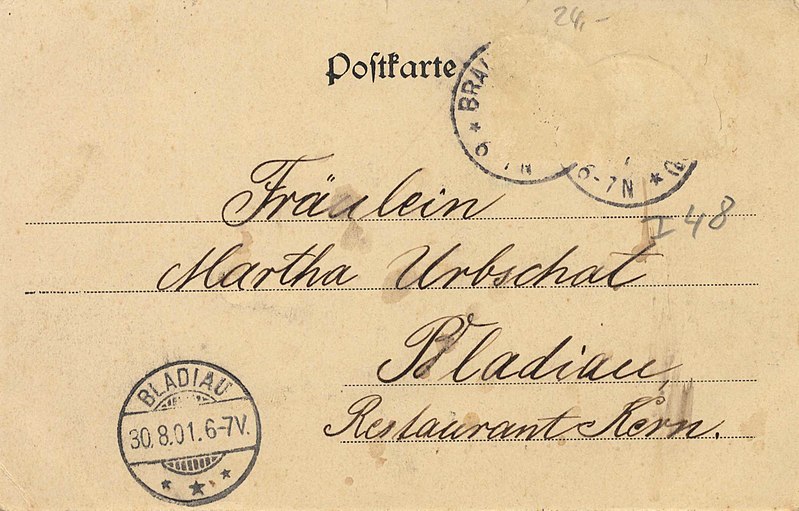 24,-
Postkarte
BRA
6-7N
Fräulein
I 48
Martha Urbschat
Bladiau,
Restaurant Kern.
BLADIAU
30.8.01.6-7V.